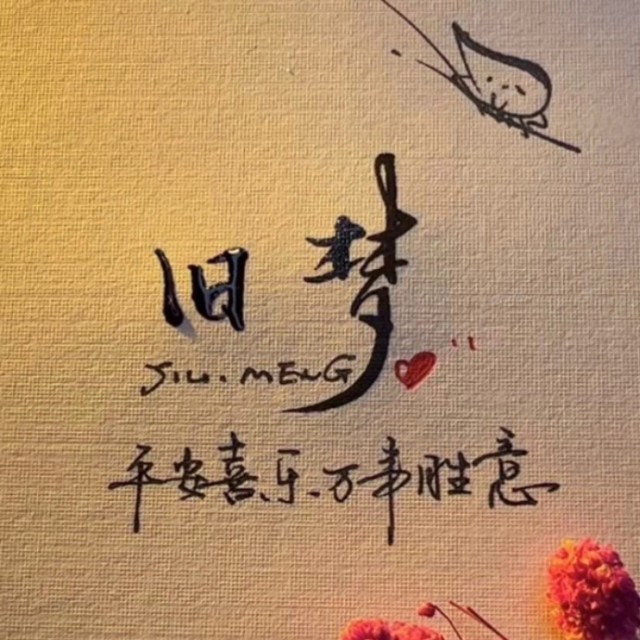 旧梦
JIU.MENG
平安喜乐.万事胜意